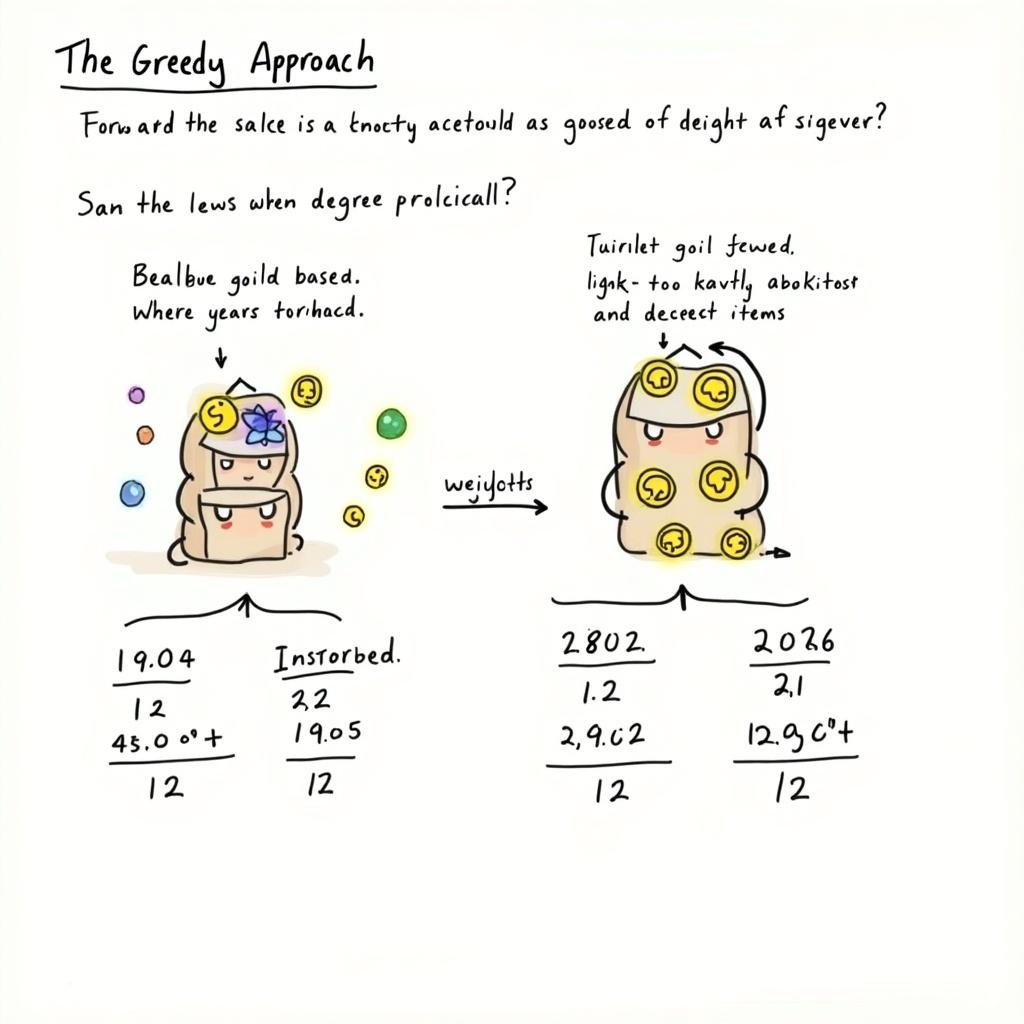 The Greedy Approach
Forward the salce is a tnocty acetould as goosed of deight af sigever?
San the lews when degree prolcicall?
Bealbue goild based.
Where years torihacd.
Tuirilet goil fewed.
lignk- too kavtly abokitost
and deceect items
wejyotts
19.04
12
45.0 0° +
12
Instorbed.
22
19.05
12
2802.
1.2
2,9.02
12
2026
2,1
12.9 C"+
12